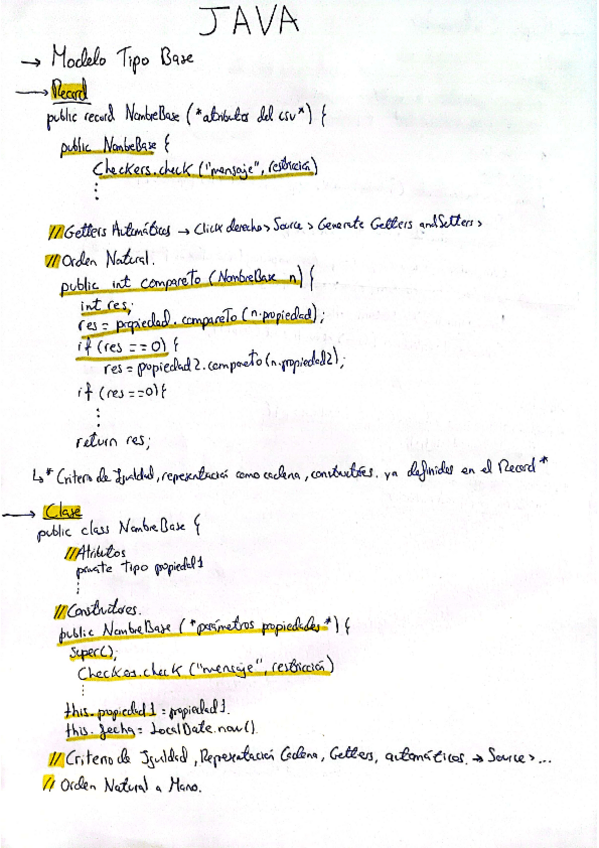 JAVA
→ Modelo Tipo Base
→ Record
public record NombreBase (*atributos del csv*) {
public NombreBase {
Checkers.check ("mensaje", restricción)
⋮
// Getters Automáticos → Click derecho > Source > Generate Getters and Setters >
// Orden Natural.
public int compareto (NombreBase n) {
int res;
res = propiedad.compareTo (n.propiedad);
if (res == 0) {
res = propiedad2.compareto(n.propiedad2);
if (res ==0){
⋮
return res;
↳ * Criterio de Igualdad, representación como cadena, constructores. ya definidos en el Record *
→ Clase
public class NombreBase {
// Atributos
private Tipo propiedad1
⋮
// Constructores.
public NombreBase (*parámetros propiedades*) {
super();
Checkers.check ("mensaje", restricción)
⋮
this.propiedad1 = propiedad1.
this.fecha = LocalDate.now().
// Criterio de Igualdad, Representación Cadena, Getters, automáticos. → Source > ...
// Orden Natural a Mano.